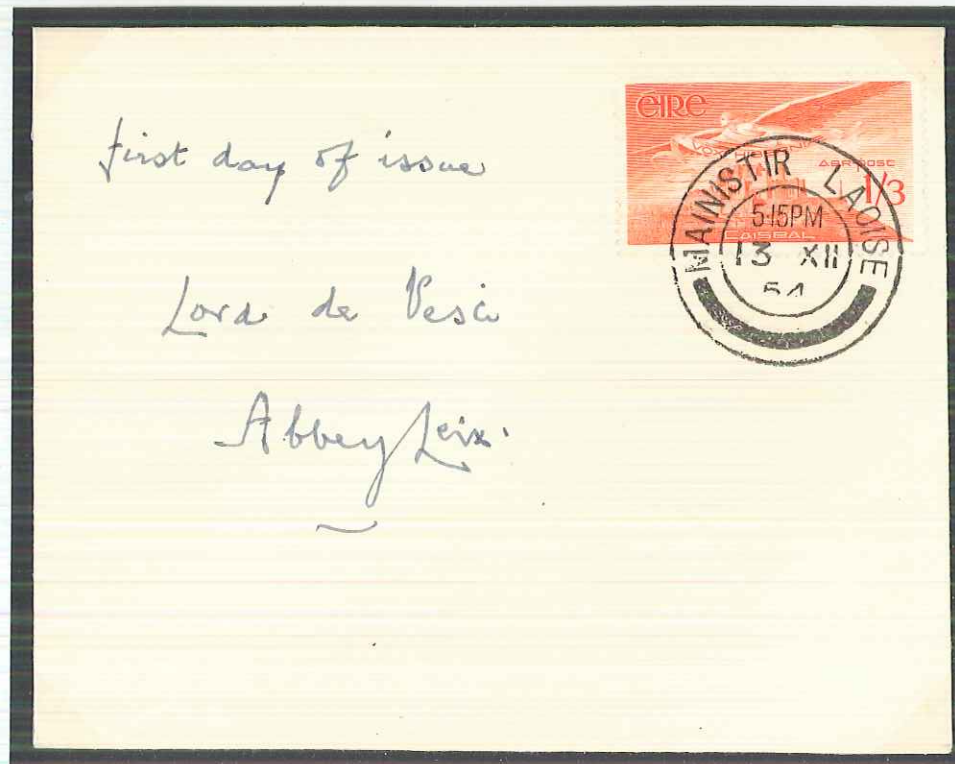 first day of issue
Lord de Vesci
Abbey Leix.
ÉIRE
VOX HIBERNIÆ
AERPOST
1/3
CAISEAL
MAINISTIR LAOISE
5·15PM
13 XII
54